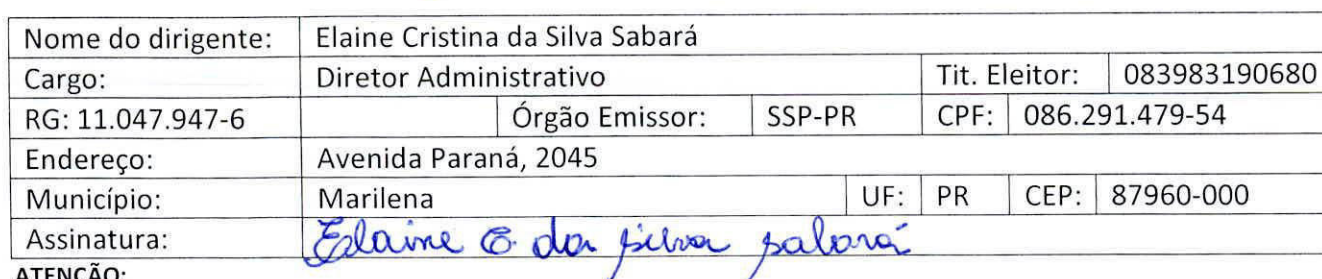 Nome do dirigente: Elaine Cristina da Silva Sabará
Cargo: Diretor Administrativo Tit. Eleitor: 083983190680
RG: 11.047.947-6 Órgão Emissor: SSP-PR CPF: 086.291.479-54
Endereço: Avenida Paraná, 2045
Município: Marilena UF: PR CEP: 87960-000
Assinatura: Elaine C. da silva sabará
ATENÇÃO: